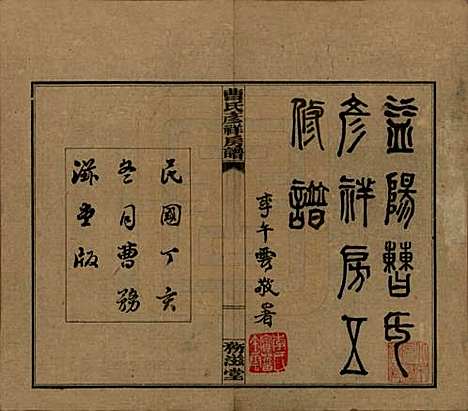 益陽曹氏
彥祥房五
修譜
李午雲敬署
曹氏彥祥房譜
務滋堂
民國丁亥
冬月曹務
滋堂版